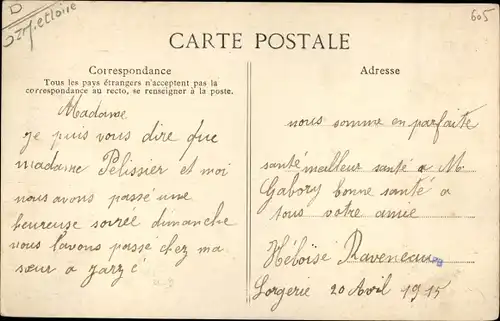 D
Mt et Loire
605
CARTE POSTALE
Correspondance
Tous les pays étrangers n'acceptent pas la
correspondance au recto, se renseigner à la poste.
Madame
je puis vous dire que
madame Pelissier et moi
nous avons passé une
heureuse soirée dimanche
nous lavons passé chez ma
sœur a jarzé
Adresse
nous somme en parfaite
santé meilleur santé a M.
Gabory bonne santé a
tous votre amie
Héloïse Raveneau
Lorgerie 20 Avril 1915